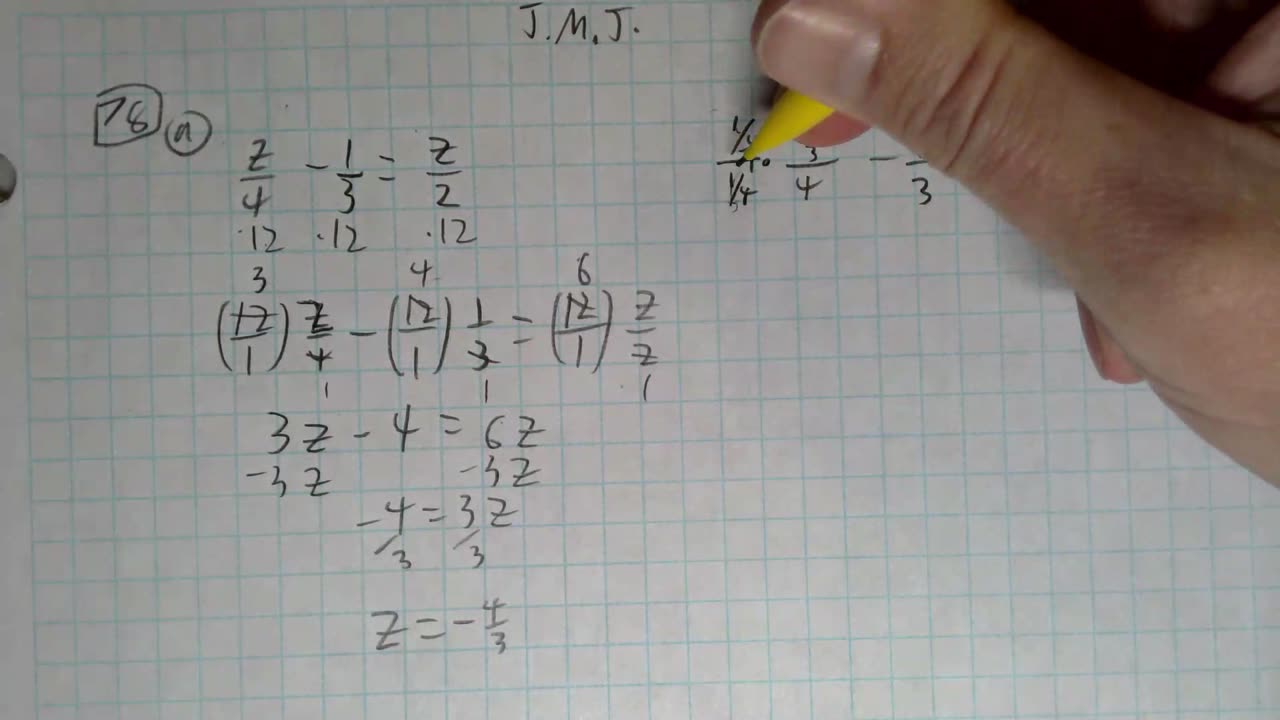 J.M.J.
78 a
z/4 - 1/3 = z/2
·12 ·12 ·12
3 4 6
(12/1) z/4 - (12/1) 1/3 = (12/1) z/2
1 1 1
3z - 4 = 6z
-3z -3z
-4 = 3z
/3 /3
z = -4/3
1/4
3/4 -
3